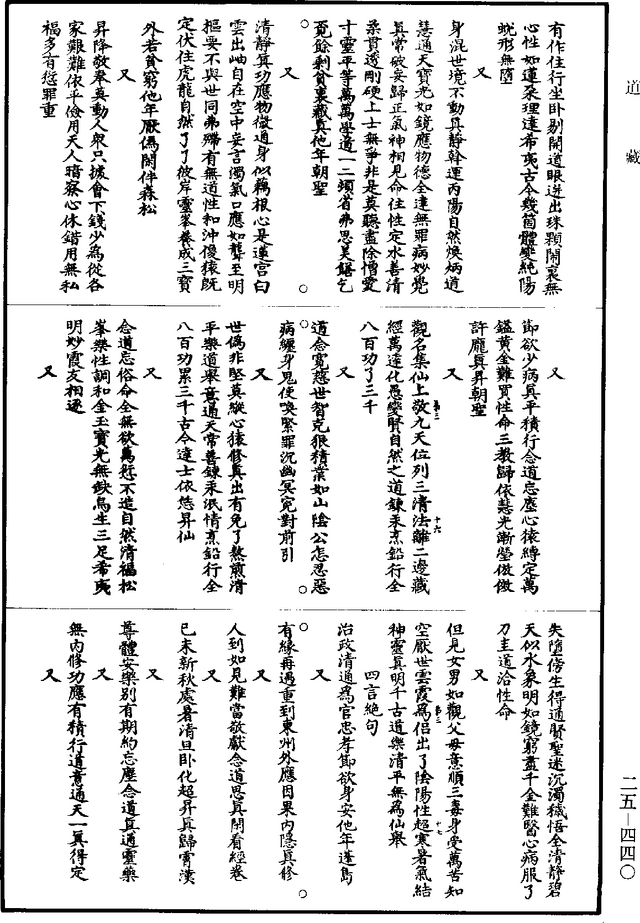 道藏
有作住行坐卧剔開道眼迸出珠顆鬧裏無
心性如蓮朶理達希夷古今幾箇體變純陽
蛻形無墮
又
身混世境不動具靜幹運丙陽自然煥炳道
慧通天寶光如鏡應物德全達無罪病妙覺
真常破妄歸正氣神相見命住性定水善清
柔貫透剛硬上士無爭非是莫聽盡除憎愛
十靈平等萬萬學道一二頻省弗思美饍乞
覓餘剩貧裏藏真他年朝聖
又
清靜真功應物微通身似藕根心是蓮宮白
雲出岫自在空中妄言濁氣口應如聾至明
樞要不與世同弗滯有無道性和沖傻猿旣
定伏住虎龍自然了了彼岸靈峯養成三寶
外若貧窮他年厭僞閑伴森松
又
昇降敬奉真動人衆只據會下錢少爲從各
家艱難依乎儉用天人暗察心休錯用無私
福多有愆罪重
又
御欲少病真平積行念道忘塵心猿縛定萬
鎰黃金難買性命三教歸依慧光漸瑩倣倣
許龐真昇朝聖
又
觀名集仙上敬九天位列三清法離二邊藏
經萬達化愚變賢自然之道鍊汞烹鉛行全
八百功了三千
又
道念寛慈世智克狠積業如山陰公怎忍惡
病纏身鬼使喚緊罪沉幽冥寃對前引
又
世僞非堅莫縱心猿修真出有免了熬煎清
平樂道舉意通天常善鍊汞泯情烹鉛行全
八百功累三千古今達士依慈昇仙
又
念道忘俗命全無欲萬愆不造自然清福松
峯樂性調和金玉寶光無缺烏生三足希夷
明妙霞友相逐
又
失墮傍生得通賢聖迷沉濁穢悟全清靜碧
天似水象明如鏡窮盡千金難醫心病服了
刀圭道洽性命
又
但見女男如觀父母意順三毒身受萬苦知
空厭世雲霞爲侶出了陰陽性超寒暑氣結
神靈真明千古道樂清平無爲仙舉
四言絶句
治政清通爲官忠孝御欲身安他年蓬島
又
有緣再遇重到東州外應因果内隱真修
又
人到如見難當敬獻念道思真開看經卷
又
已未新秋處暑清旦卧化超昇真歸霄漢
又
尊體安樂別有期約忘塵念道真通靈藥
又
無内修功應有積行道意通天一真得定
又
二五－四四〇